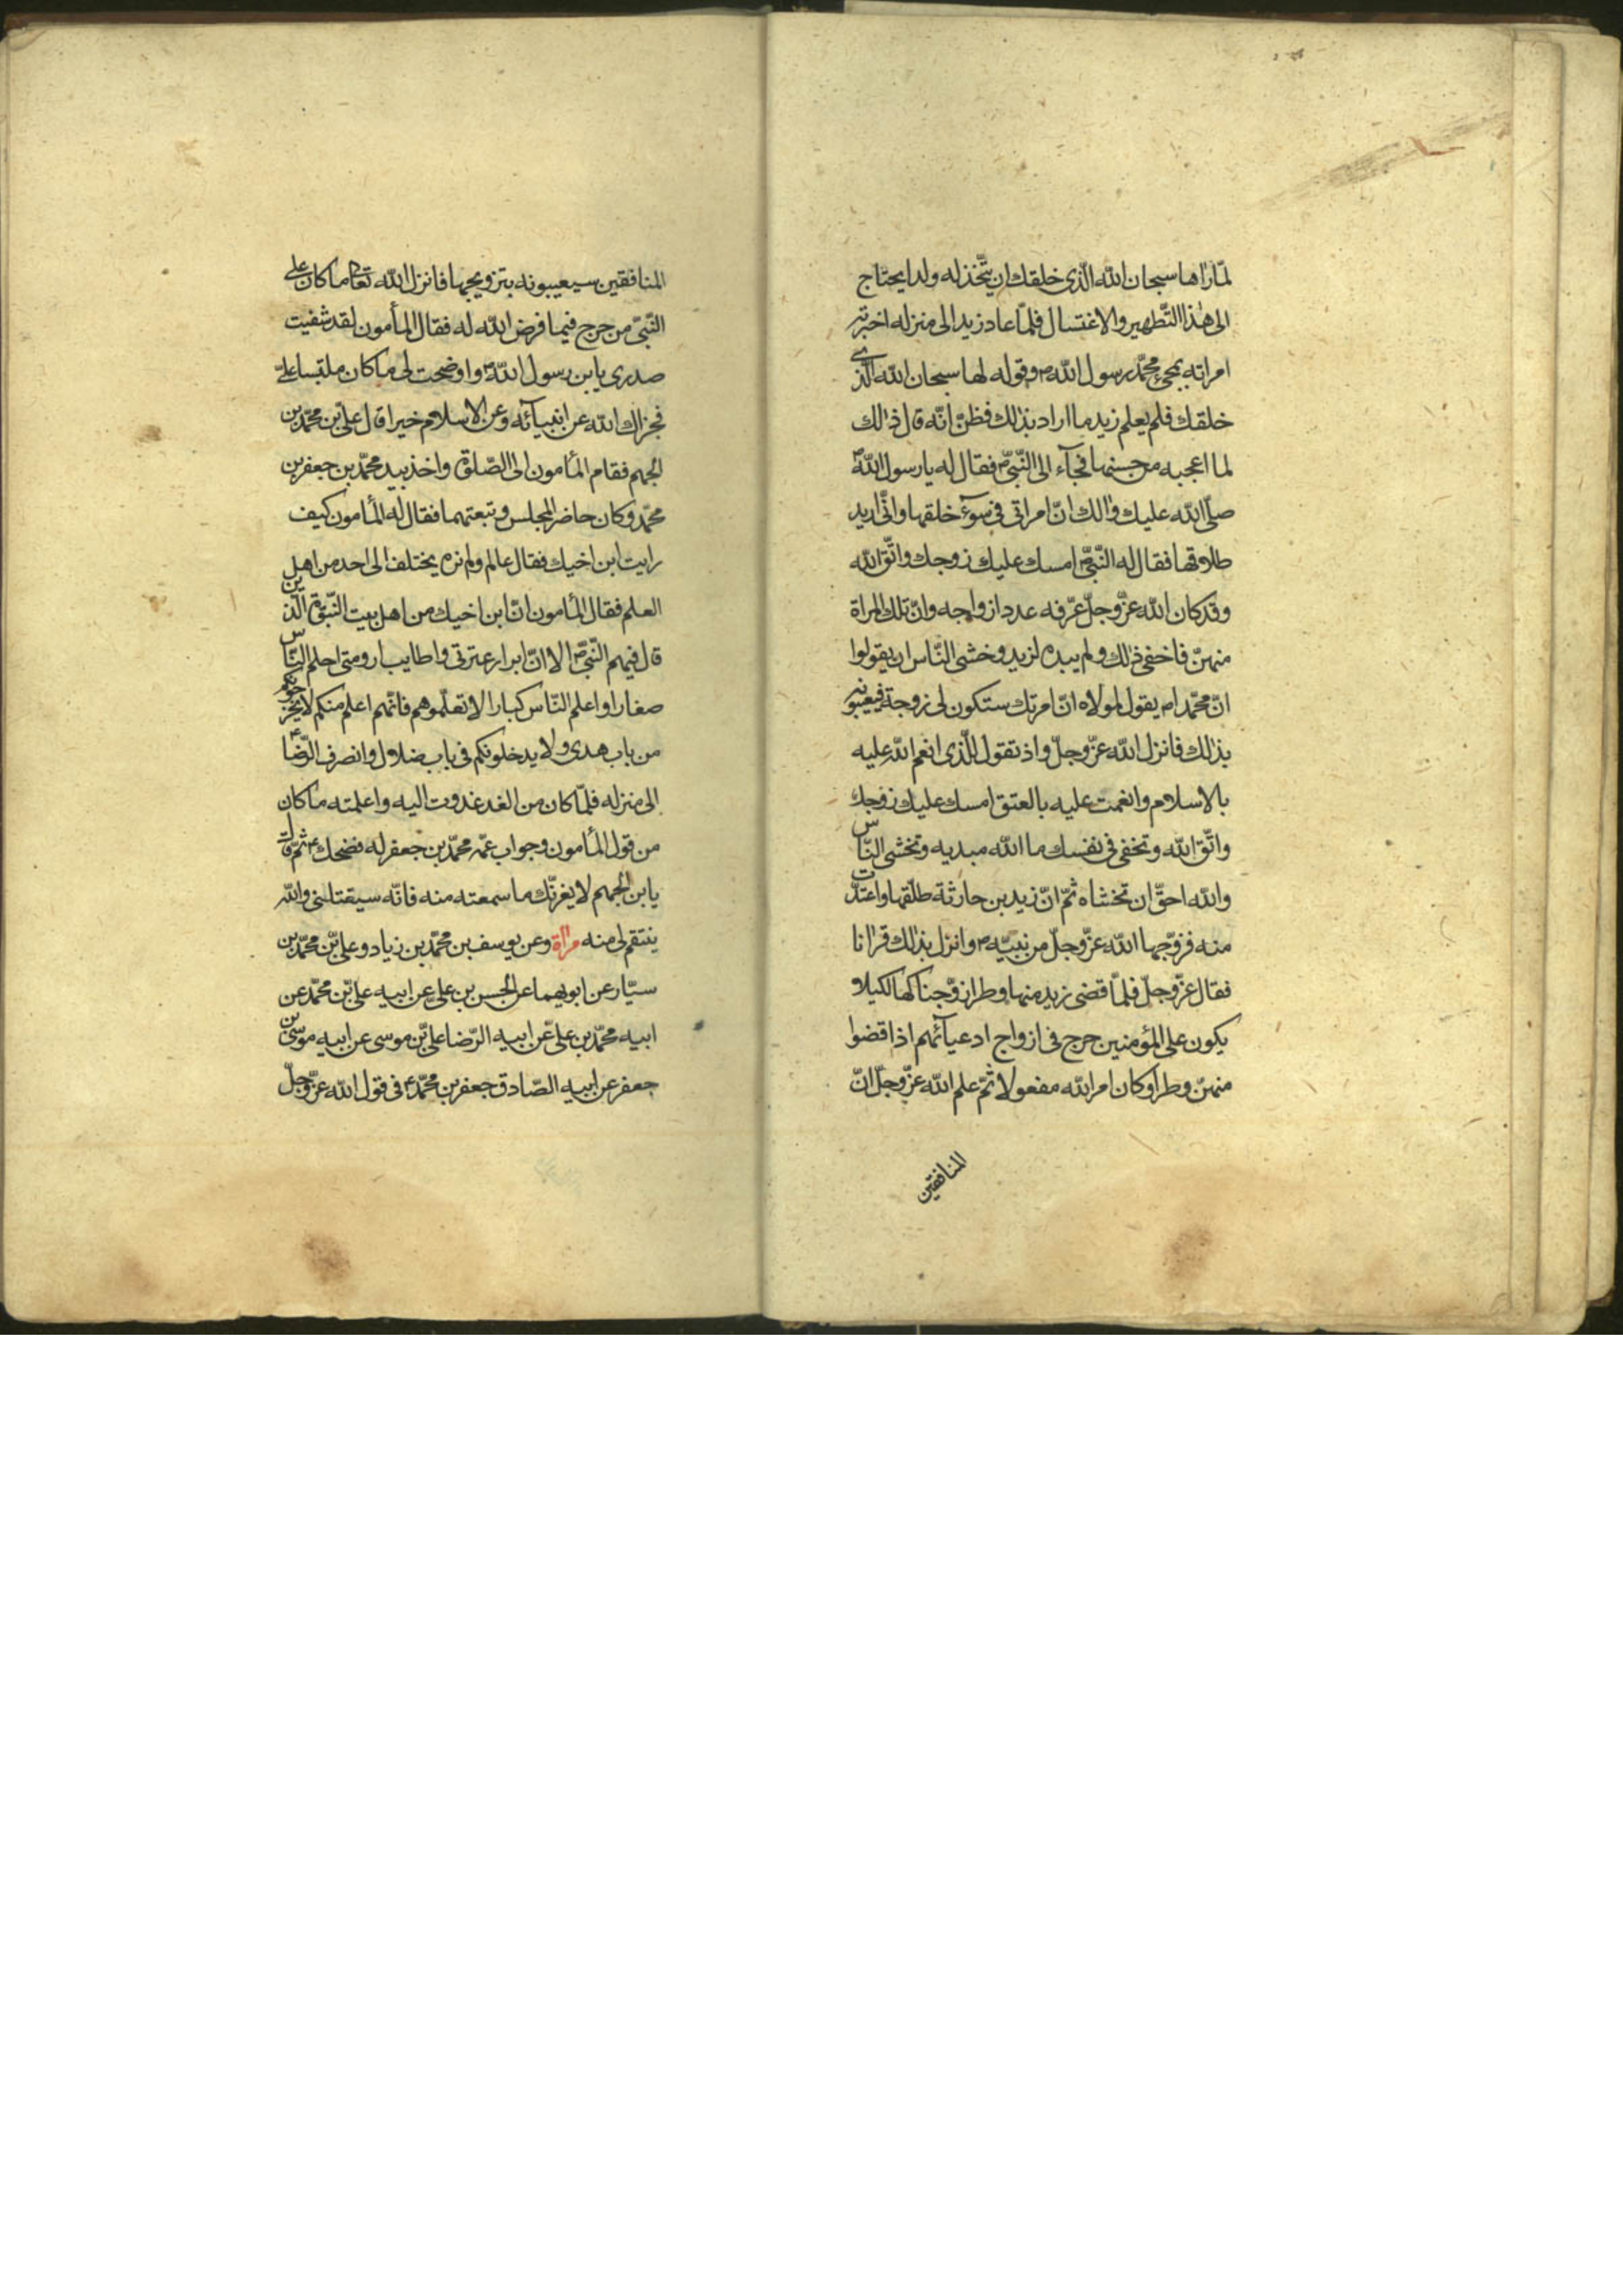 لمّا راها سبحان الله الّذى خلقك ان يتّخذ له ولدا يحتاج
الى هذا التّطهير والاغتسال فلمّا عاد زيد الى منزله اخبرته
امراته بمجئ محمّد رسول الله ص وقوله لها سبحان الله الّذى
خلقك فلم يعلم زيد ما اراد بذلك فظنّ انّه قال ذلك
لما اعجبه من حسنها فجآء الى النّبىّ ص فقال له يا رسول الله ص
صلّى الله عليك والك انّ امراتى فى سوء خلقها وانّى اريد
طلاقها فقال له النّبىّ ص امسك عليك زوجك واتّق الله
وقد كان الله عزّ وجلّ عرّفه عدد ازواجه وانّ تلك المراة
منهنّ فاخفى ذلك ولم يبده لزيد وخشى النّاس ان يقولوا
انّ محمّدا ص يقول لمولاه انّ امرتك ستكون لى زوجة فيعيبونه
بذلك فانزل الله عزّ وجلّ واذ تقول للّذى انعم الله عليه
بالاسلام وانعمت عليه بالعتق امسك عليك زوجك
واتّق الله وتخفى فى نفسك ما الله مبديه وتخشى النّاس
والله احقّ ان تخشاه ثمّ انّ زيد بن حارثة طلّقها واعتدّت
منه فزوّجها الله عزّ وجلّ من نبيّه ص وانزل بذلك قرانا
فقال عزّ وجلّ فلمّا قضى زيد منها وطرا زوّجناكها لكيلا
يكون على المؤمنين حرج فى ازواج ادعيآئهم اذا قضوا
منهنّ وطرا وكان امر الله مفعولا ثمّ علم الله عزّ وجلّ انّ
المنافقين
المنافقين سيعيبونه بتزويجها فانزل الله تعا ما كان على
النّبىّ من حرج فيما فرض الله له فقال المأمون لقد شفيت
صدرى يا بن رسول الله ص واوضحت لى ما كان ملتبسا علىّ
فجزاك الله عن انبيآئه وعن الاسلام خيرا قال علىّ بن محمّد بن
الجهم فقام المأمون الى الصّلوة واخذ بيد محمّد بن جعفر بن
محمّد وكان حاضر المجلس وتبعتهما فقال له المأمون كيف
رايت ابن اخيك فقال عالم ولم نره يختلف الى احد من اهل
العلم فقال المأمون انّ ابن اخيك من اهل بيت النّبوّة الّذين
قال فيهم النّبىّ ص الا انّ ابرار عترتى واطايب ارومتى احلم النّاس
صغارا واعلم النّاس كبارا لا تعلّموهم فانّهم اعلم منكم لا يخرجونكم
من باب هدى ولا يدخلونكم فى باب ضلال وانصرف الرّضا ع
الى منزله فلمّا كان من الغد غدوت اليه واعلمته ما كان
من قول المأمون وجواب عمّه محمّد بن جعفر له فضحك ع ثمّ قال
يا بن الجهم لا يغرنّك ما سمعته منه فانّه سيقتلنى والله
ينتقم لى منه مراة وعن يوسف بن محمّد بن زياد وعلىّ بن محمّد بن
سيّار عن ابويهما عن الحسن بن علىّ عن ابيه علىّ بن محمّد عن
ابيه محمّد بن علىّ عن ابيه الرّضا علىّ بن موسى عن ابيه موسى بن
جعفر عن ابيه الصّادق جعفر بن محمّد ع فى قول الله عزّ وجلّ